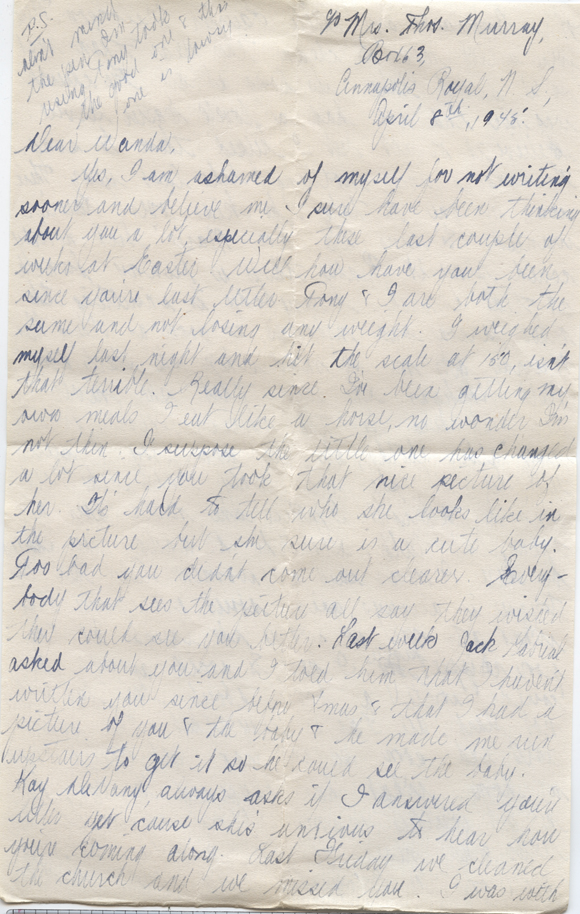 P.S.
don't mind
the pen I'm
using Tony took
the good one & this
one is lousy.
℅ Mrs. Thos. Murray,
Box 63,
Annapolis Royal, N. S.,
April 8th, 1945.
Dear Wanda,
Yes, I am ashamed of myself for not writing
sooner and believe me I sure have been thinking
about you a lot, especially these last couple of
weeks at Easter. Well how have you been
since you're last letter. Tony & I are both the
same and not losing any weight. I weighed
myself last night and hit the scale at 150, isn't
that terrible. Really since I've been getting my
own meals I eat like a horse, no wonder I'm
not thin. I suppose the little one has changed
a lot since you took that nice picture of
her. It's hard to tell who she looks like in
the picture but she sure is a cute baby.
Too bad you didn't come out clearer. Every-
body that sees the picture all say they wished
they could see you better. Last week Jack
asked about you and I told him that I haven't
written you since before Xmas & that I had a
picture of you & the baby & he made me run
upstairs to get it so he could see the baby.
Kay always asks if I answered you're
letter yet 'cause she's anxious to hear how
you're coming along. Last Friday we cleaned
the church and we missed you. I was with